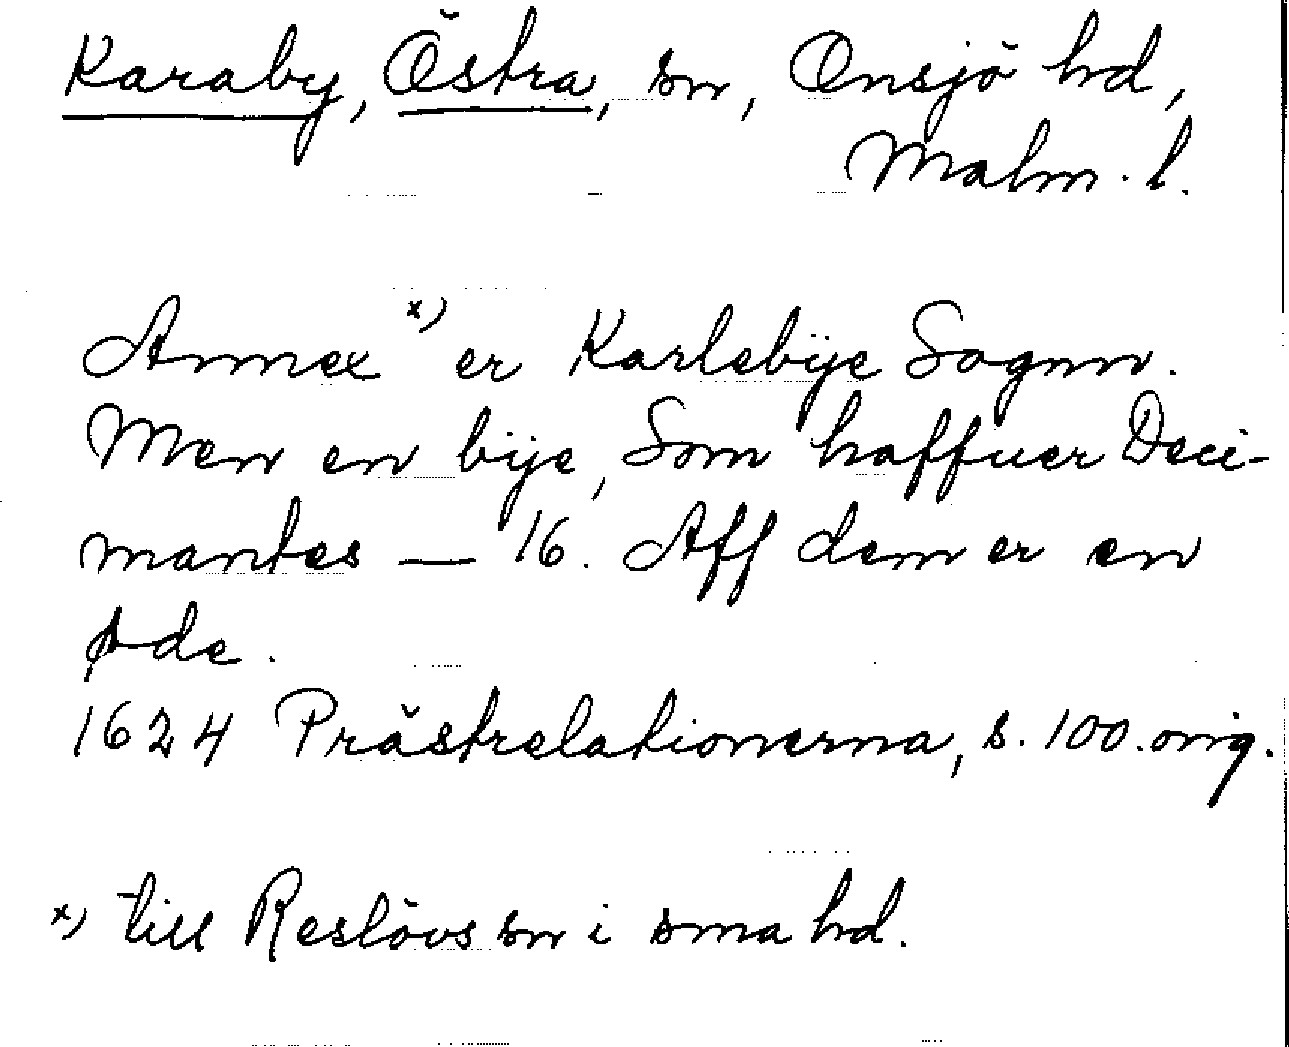 Karaby, Östra, sn, Onsjö hd,
Malm. l.
Annex x) er Karlebÿe Sognn.
Men en bÿe, Som haffuer Deci-
mantes — 16. Aff dem er en
øde.
1624 Prästrelationerna, s. 100. orig.
x) till Reslövs sn i sma hd.